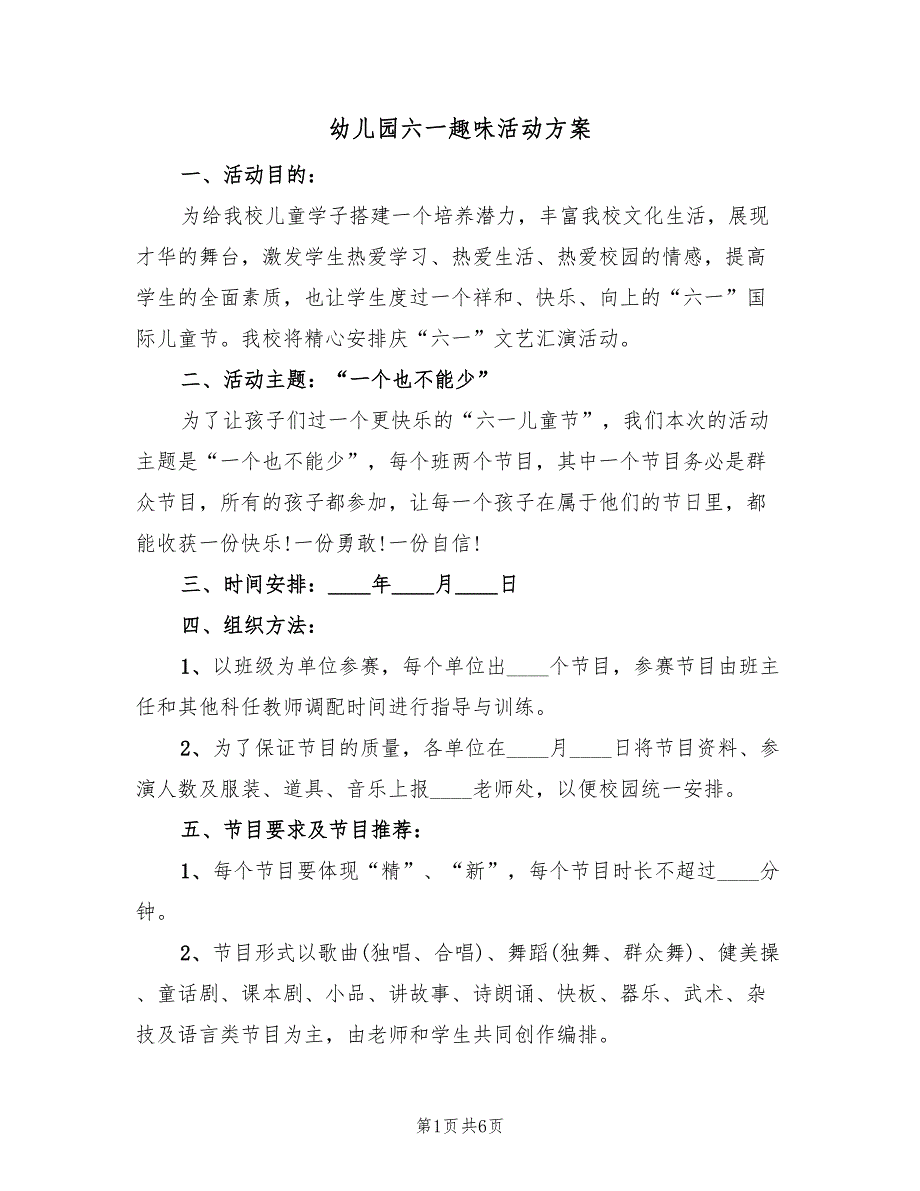 幼儿园六一趣味活动方案
一、活动目的：
为给我校儿童学子搭建一个培养潜力，丰富我校文化生活，展现
才华的舞台，激发学生热爱学习、热爱生活、热爱校园的情感，提高
学生的全面素质，也让学生度过一个祥和、快乐、向上的“六一”国
际儿童节。我校将精心安排庆“六一”文艺汇演活动。
二、活动主题：“一个也不能少”
为了让孩子们过一个更快乐的“六一儿童节”，我们本次的活动
主题是“一个也不能少”，每个班两个节目，其中一个节目务必是群
众节目，所有的孩子都参加，让每一个孩子在属于他们的节日里，都
能收获一份快乐!一份勇敢!一份自信!
三、时间安排：____年____月____日
四、组织方法：
1、以班级为单位参赛，每个单位出____个节目，参赛节目由班主
任和其他科任教师调配时间进行指导与训练。
2、为了保证节目的质量，各单位在____月____日将节目资料、参
演人数及服装、道具、音乐上报____老师处，以便校园统一安排。
五、节目要求及节目推荐：
1、每个节目要体现“精”、“新”，每个节目时长不超过____分
钟。
2、节目形式以歌曲(独唱、合唱)、舞蹈(独舞、群众舞)、健美操
、童话剧、课本剧、小品、讲故事、诗朗诵、快板、器乐、武术、杂
技及语言类节目为主，由老师和学生共同创作编排。
第1页 共6页